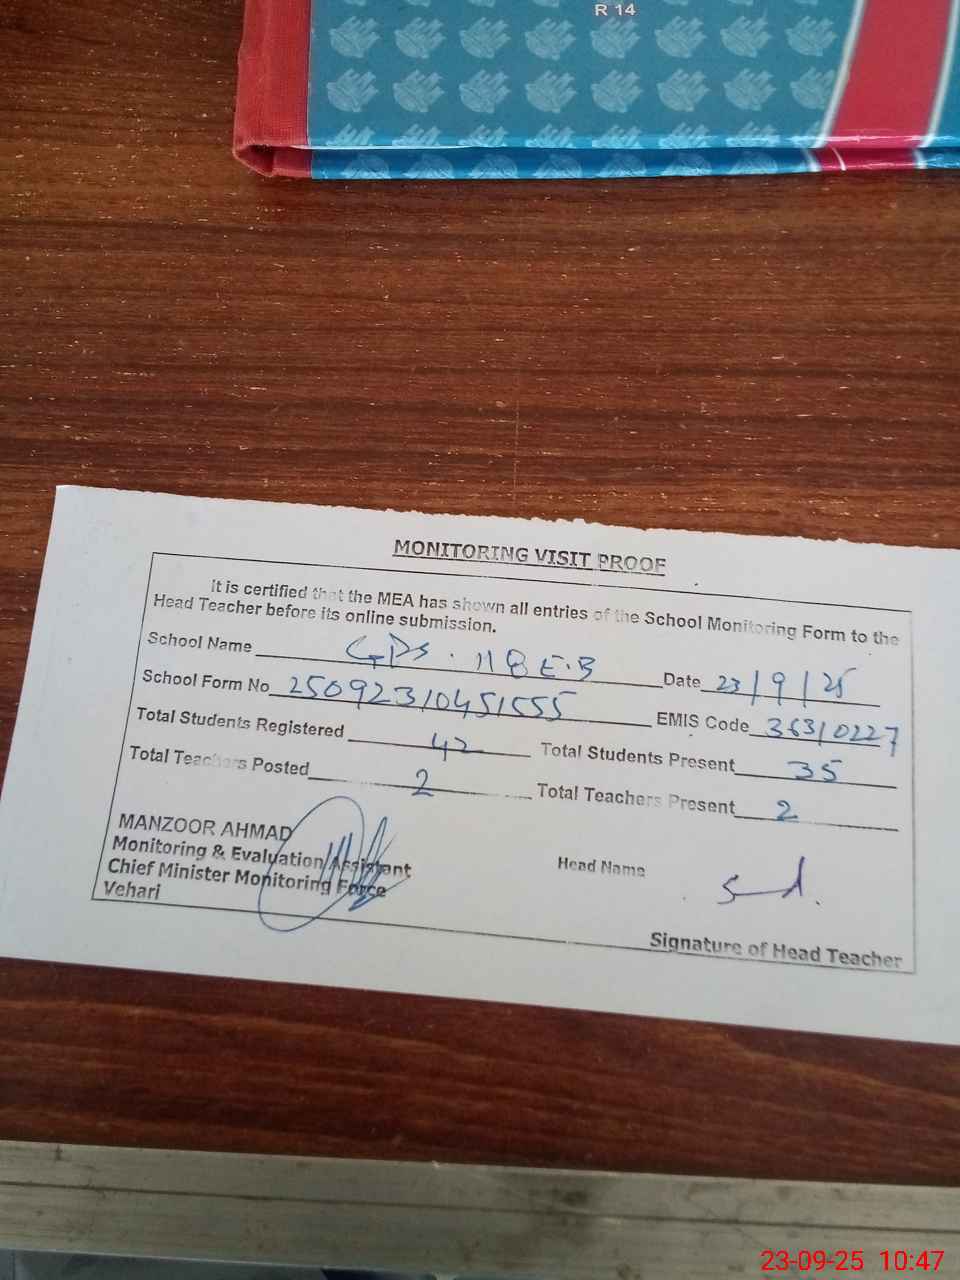 R 14
MONITORING VISIT PROOF
It is certified that the MEA has shown all entries of the School Monitoring Form to the
Head Teacher before its online submission.
School Name GPS. 118 E.B Date 23/9/25
School Form No 25092310451555 EMIS Code 36310227
Total Students Registered 42 Total Students Present 35
Total Teachers Posted 2 Total Teachers Present 2
MANZOOR AHMAD
Monitoring & Evaluation Assistant
Chief Minister Monitoring Force
Vehari
Head Name
Signature of Head Teacher
23-09-25 10:47